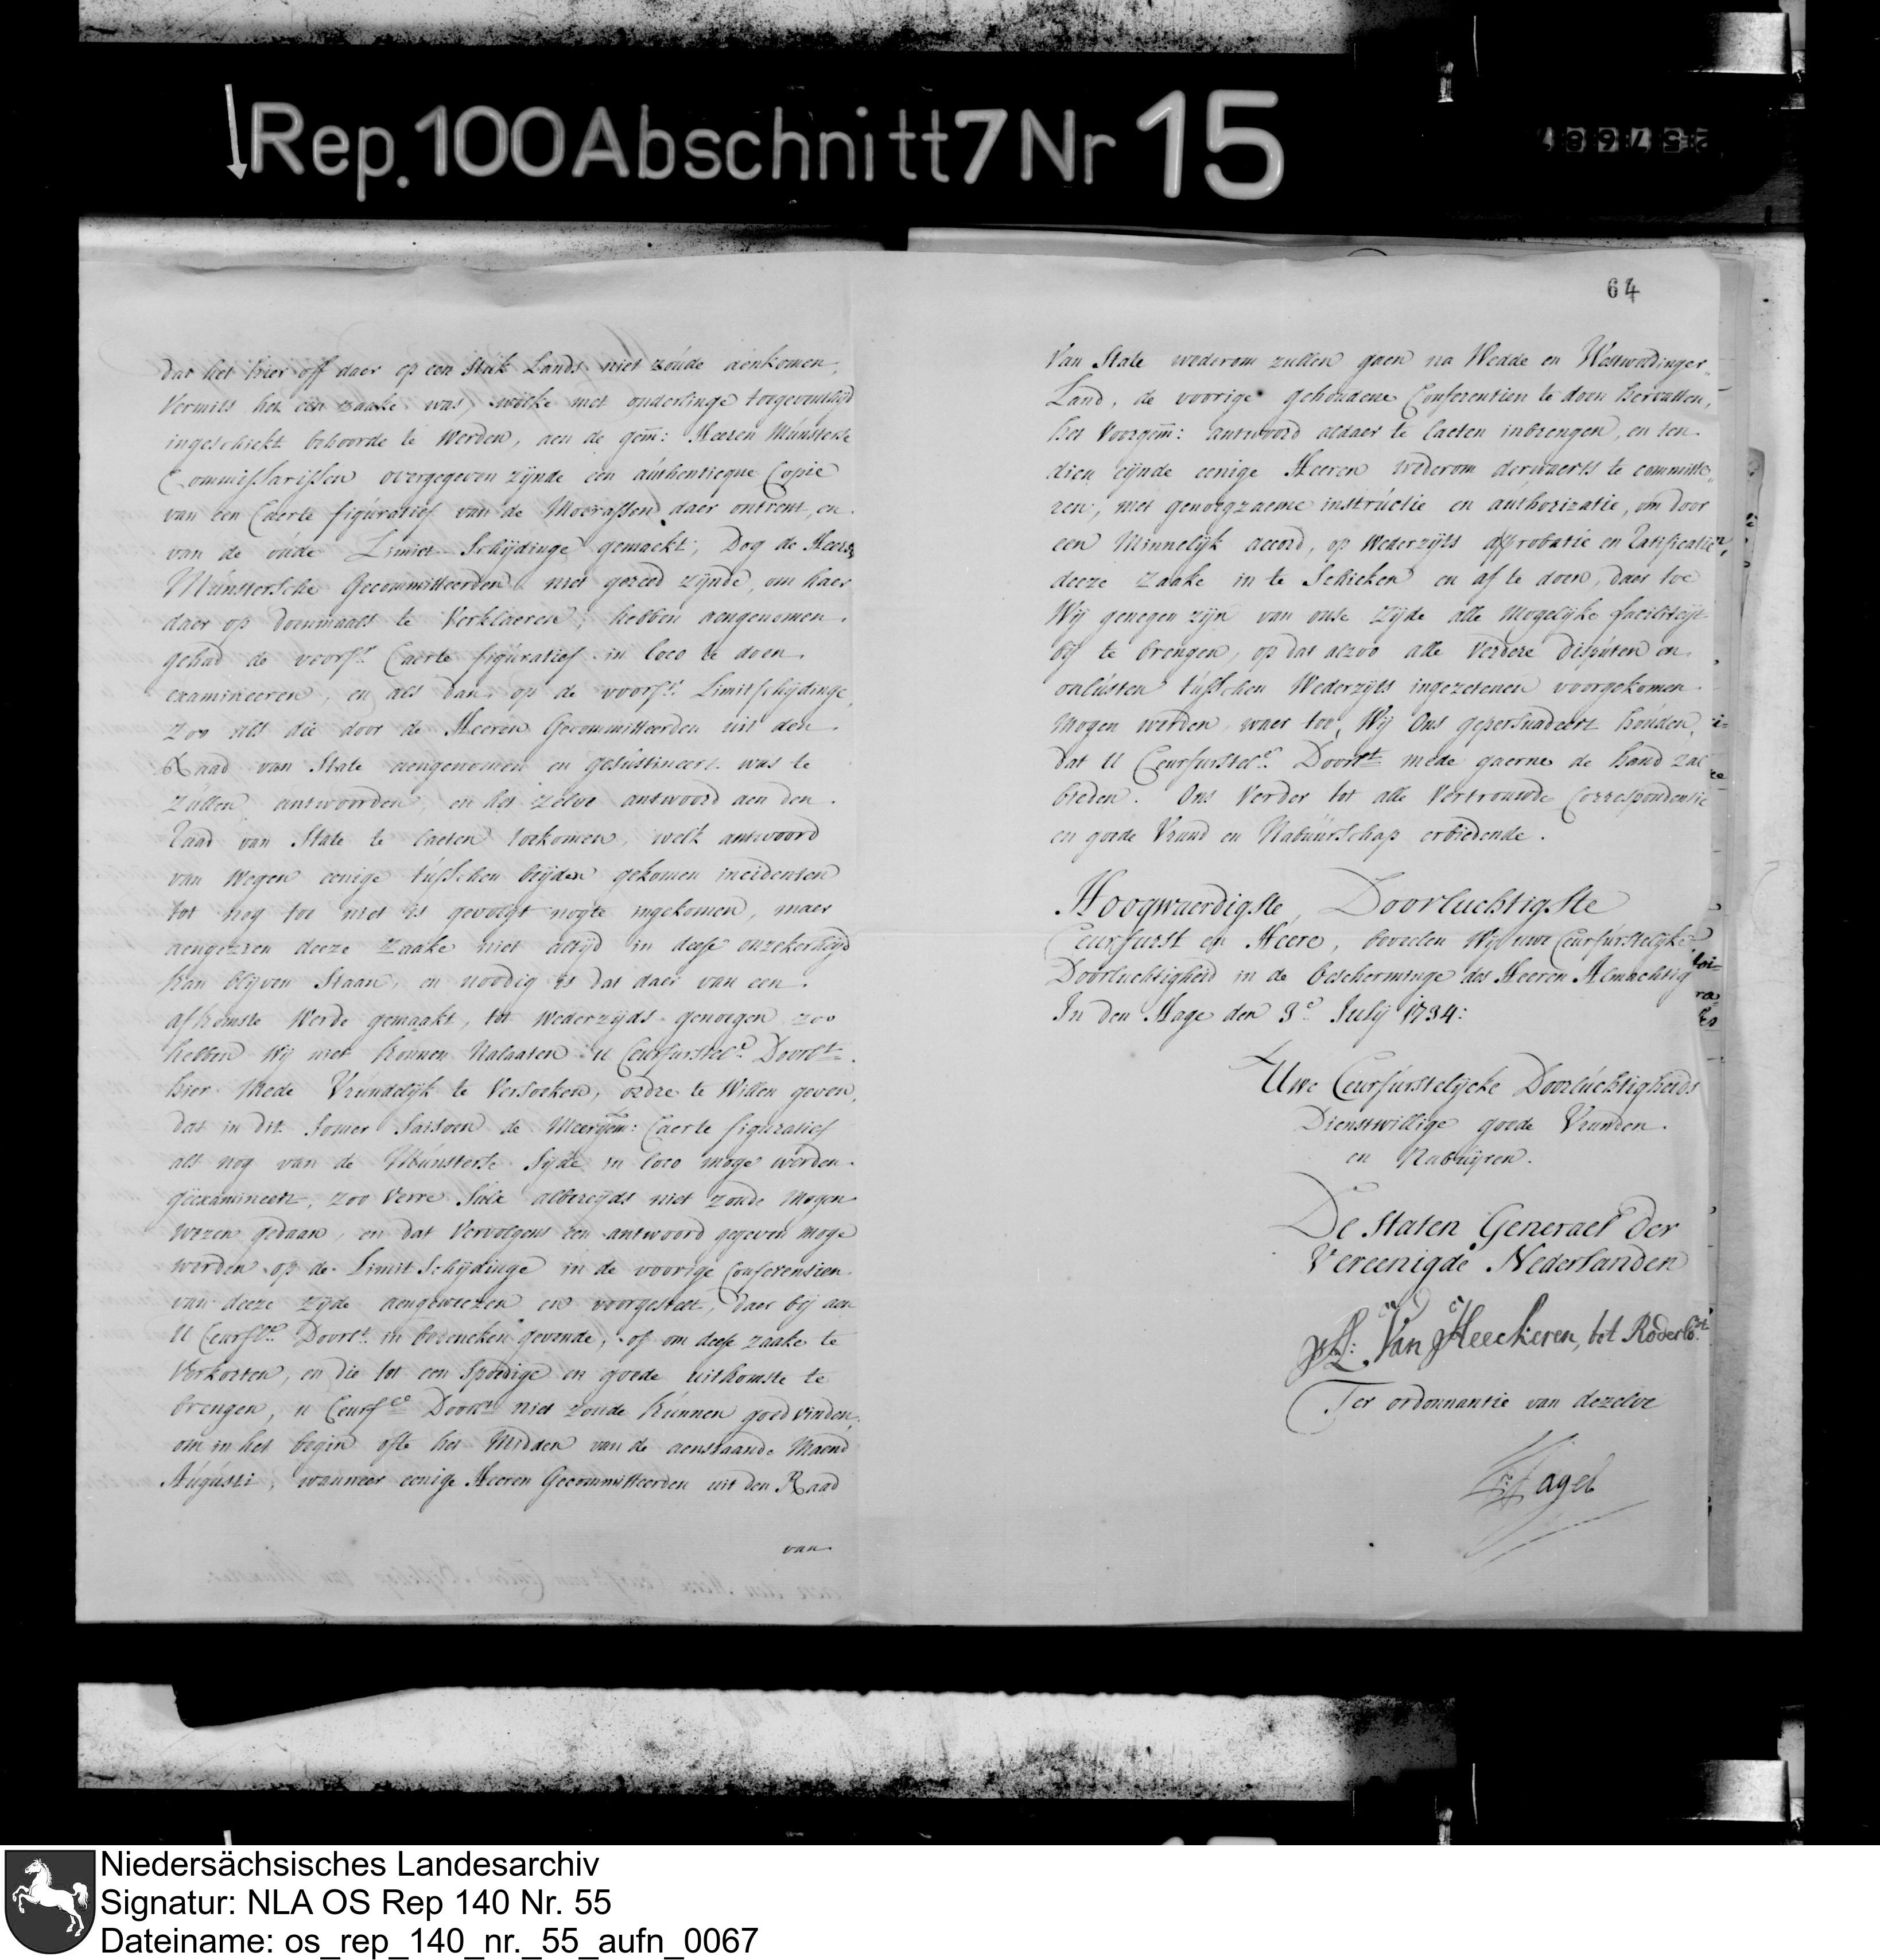 Rep. 100 Abschnitt 7 Nr 15
dat het hier off daer op een stuk Lands niet zoúde aenkomen,
vermits het een zaake was, welke met onderlinge toegeventhijd
ingeschickt behoorde te werden, aen de gem̄: Heeren Múnsterse
Commissarissen overgegeven zijnde een aúthenticque Copie
van een Caerte figúratief van de Moerassen daer ontrent, en
van de oúde Limiet Schijdinge gemaekt; Dog de Heere
Múnstersche Gecommitteerden niet gereed zijnde, om haer
daer op doenmaals te verklaeren, hebben aengenomen
gehad de voorsz. Caerte figúratief in loco te doen
examineeren, en als dan op de voorsz. Limitschijdinge,
zoo als die door de Heeren Gecommitteerden uit den
Raad van State aengenomen en gesústineert was te
zúllen antwoorden, en het zelve antwoord aen den
Raad van State te laeten toekomen, welk antwoord
van wegen eenige tússchen beijden gekomen incidenten
tot nog toe niet is gevolgt nogte ingekomen, maer
aengezien deeze zaake niet altijd in deese onzekerhijd
kan blijven staan, en noodig is dat daer van een
afkomste werde gemaakt, tot wederzijds genoegen zoo
hebben Wij niet konnen nalaaten u Ceurfurstel.e Doorl.t
hier mede vrúndelijk te versoeken, ordre te willen geven,
dat in dit Somer Saisoen de Meergem̄: Caerte figuratief
als nog van de Múnsterse Sijde in loco moge worden
geëxamineert, zoo verre súlx albereijds niet zoude mogen
wezen gedaan, en dat vervolgens een antwoord gegeven moge
werden op de Limit Schijdinge in de voorige Conferentien
van deeze zijde aengeweezen en voorgestelt, daer bij aen
U Ceurfl.e Doorl.t in bedencken gevende, of om deese zaake te
verkorten, en die tot een spoedige en goede uitkomste te
brengen, u Ceurf.e Doorl.t niet zoude kúnnen goedvinden,
om in het begin ofte het midden van de aenstaande Maend
Aúgústi, wanneer eenige Heeren Gecommitteerden uit den Raad
van
64
Van State wederom zullen gaen na Wedde en Westwoldinger
Land, de voorige gehoudene Conferentien te doen hervatten,
het voorgem̄: antwoord aldaer te laeten inbrengen, en ten
dien eijnde eenige Heeren wederom derwaerts te committe
ren, met genoegzaeme instrúctie en aúthorizatie, om door
een Minnelijk accord, op wederzijts approbatie en Ratificatie,
deeze zaake in te schicken en af te doen, daer toe
Wij genegen zijn van onse zijde alle mogelijke faciliteijt
bij te brengen, op dat alzoo alle verdere dispúten en
onlústen tússchen wederzijts ingezetenen voorgekomen
mogen werden, waer toe Wij Ons gepersuadeert hoúden,
dat U Ceurfurstel.e Doorl.t mede gaerne de hand zal
bieden. Ons verder tot alle vertrouwde Correspondentie
en goede Vrund en Nabuúrschap erbiedende.
Hoogwaerdigste, Doorluchtigste
Ceurfurst en Heere, beveelen Wij uwe Ceurfúrstelijke
Doorluchtigheid in de bescherminge des Heeren Almachtig
In den Hage den 3.e Julij 1734:
Uwe Ceurfúrstelijcke Doorlúchtigheids
Dienstwillige goede Vrunden
en Nabuijren.
De Staten Generael der
Vereenigde Nederlanden
Van Heeckeren, tot Roderlo
Ter ordonnantie van dezelve
Fagel
Niedersächsisches Landesarchiv
Signatur: NLA OS Rep 140 Nr. 55
Dateiname: os_rep_140_nr._55_aufn_0067